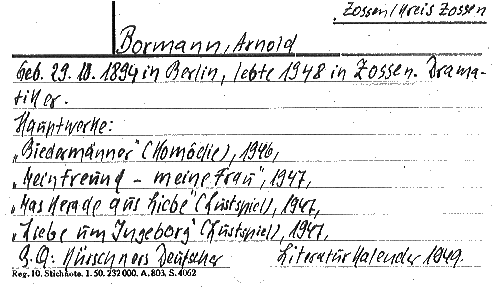 Zossen/Kreis Zossen
Bormann, Arnold
Geb. 29. 10. 1894 in Berlin, lebte 1948 in Zossen. Drama-
tiker.
Hauptwerke:
„Biedermänner" (Komödie), 1946,
„Mein Freund - meine Frau", 1947,
„Maskerade aus Liebe" (Lustspiel), 1947,
„Liebe um Ingeborg" (Lustspiel), 1947,
B. Q: Kürschners Deutscher Literatur Kalender 1949.
Reg. 10. Stichnote. 1. 50. 232000. A. 803. S. 4062